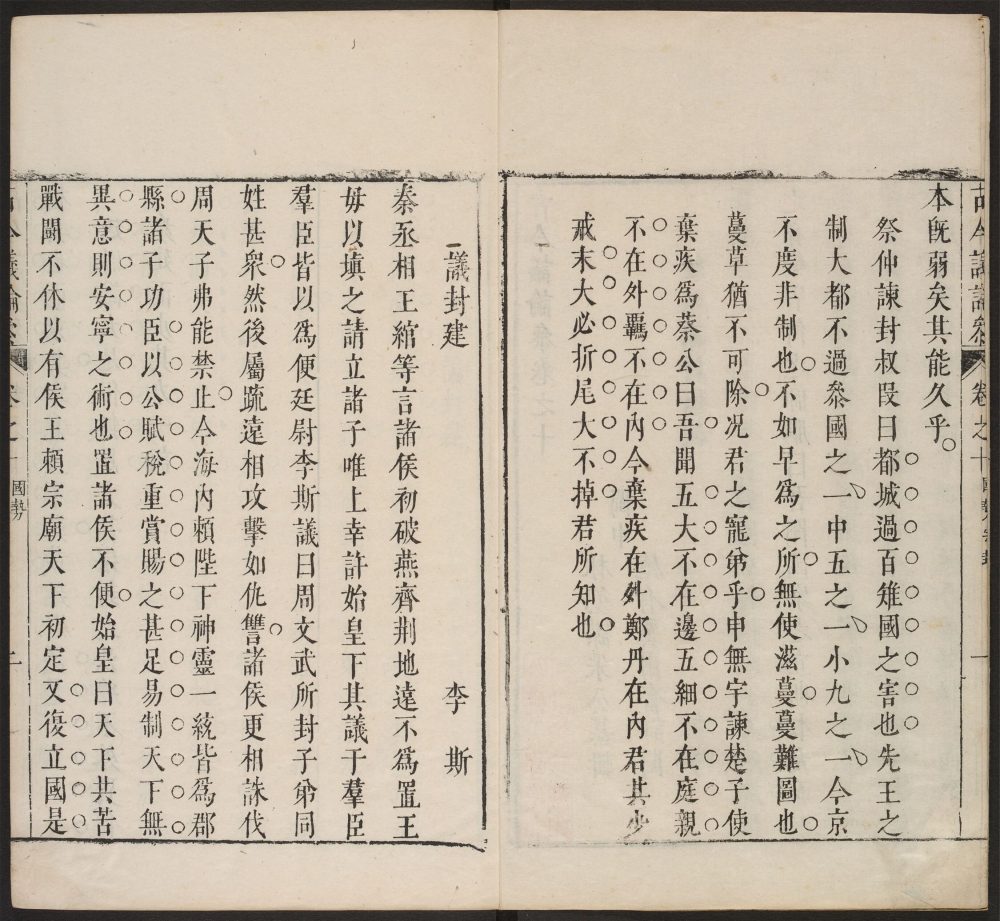 古今議論參 卷之十 國勢 一
本旣弱矣其能久乎
祭仲諫封叔叚曰都城過百雉國之害也先王之
制大都不過叅國之一中五之一小九之一今京
不度非制也不如早爲之所無使滋蔓蔓難圖也
蔓草猶不可除况君之寵弟乎申無宇諫楚子使
葉疾爲蔡公曰吾聞五大不在邊五細不在庭親
不在外羈不在內今棄疾在外鄭丹在內君其少
戒末大必折尾大不掉君所知也
議封建 李斯
秦丞相王綰等言諸侯初破燕齊荆地遠不爲置王
毋以塡之請立諸子唯上幸許始皇下其議于羣臣
羣臣皆以爲便廷尉李斯議曰周文武所封子弟同
姓甚衆然後屬疏遠相攻擊如仇讐諸侯更相誅伐
周天子弗能禁止今海內賴陛下神靈一統皆爲郡
縣諸子功臣以公賦稅重賞賜之甚足易制天下無
異意則安寧之術也置諸侯不便始皇曰天下共苦
戰鬬不休以有侯王賴宗廟天下初定又復立國是
古今議論參 卷之十 國勢 二